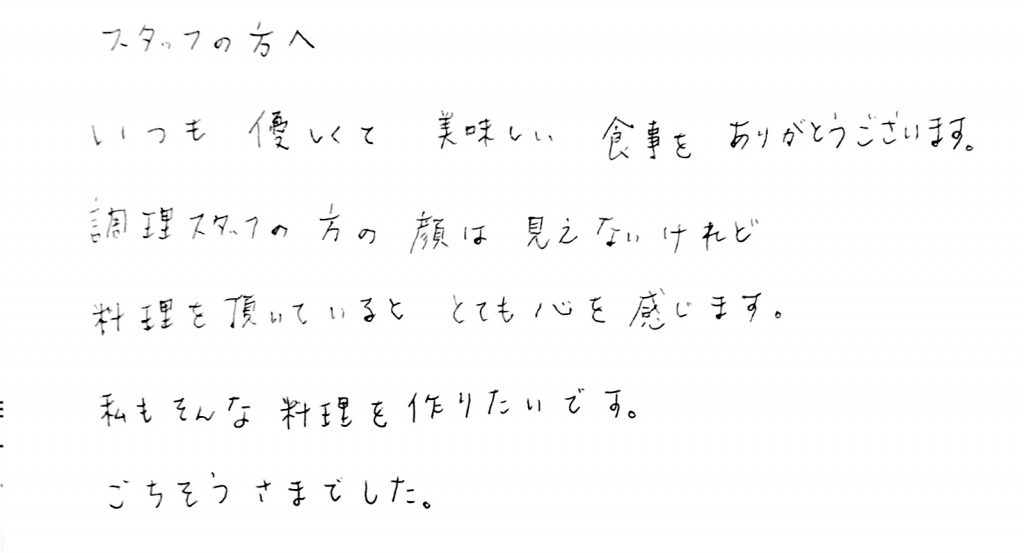 スタッフの方へ
いつも 優しくて 美味しい 食事を ありがとうございます。
調理スタッフの 方の 顔は 見えないけれど
料理を頂いていると とても心を感じます。
私もそんな料理を作りたいです。
ごちそうさまでした。